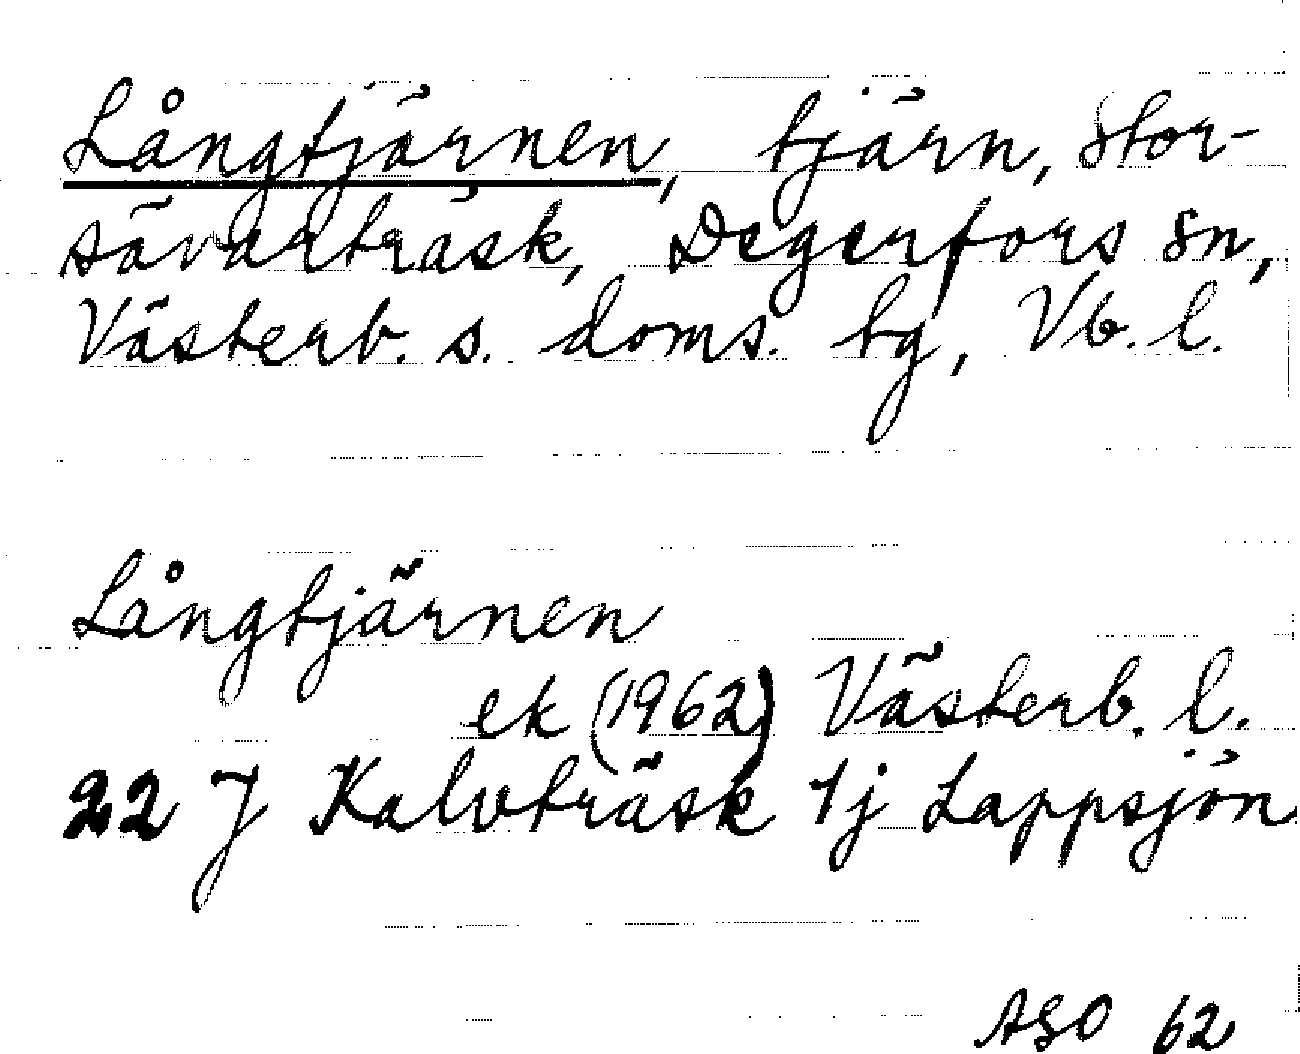 Långtjärnen, tjärn, Stor-
sävarträsk, Degerfors sn,
Västerb. s. doms. tg, Vb. l.
Långtjärnen
ek (1962) Västerb. l.
22 J Kalvträsk 1j Lappsjön
ASO 62